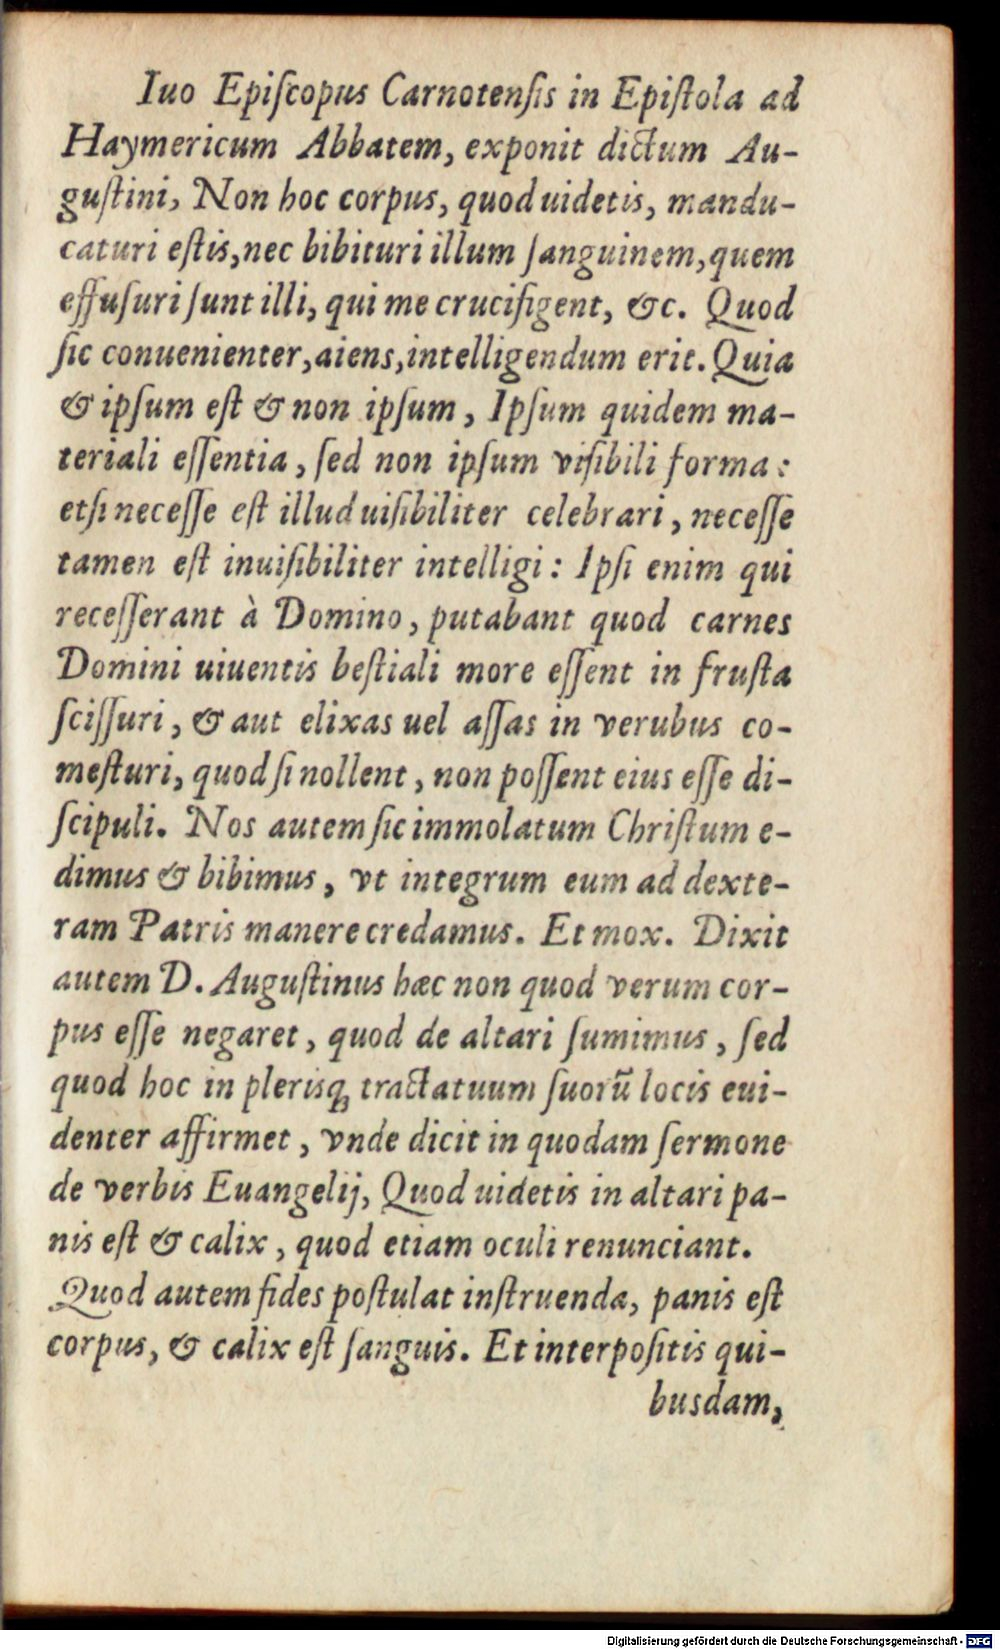 Iuo Epiſcopus Carnotenſis in Epiſtola ad
Haymericum Abbatem, exponit dictum Au-
guſtini, Non hoc corpus, quod uidetis, mandu-
caturi eſtis, nec bibituri illum ſanguinem, quem
effuſuri ſunt illi, qui me crucifigent, &c. Quod
ſic conuenienter, aiens, intelligendum erit. Quia
& ipſum eſt & non ipſum, Ipſum quidem ma-
teriali eſſentia, ſed non ipſum viſibili forma:
etſi neceſſe eſt illud uiſibiliter celebrari, neceſſe
tamen eſt inuiſibiliter intelligi: Ipſi enim qui
receſſerant à Domino, putabant quod carnes
Domini uiuentis beſtiali more eſſent in fruſta
ſciſſuri, & aut elixas uel aſſas in verubus co-
meſturi, quod ſi nollent, non poſſent eius eſſe di-
ſcipuli. Nos autem ſic immolatum Chriſtum e-
dimus & bibimus, vt integrum eum ad dexte-
ram Patris manere credamus. Et mox. Dixit
autem D. Auguſtinus hæc non quod verum cor-
pus eſſe negaret, quod de altari ſumimus, ſed
quod hoc in pleriſq; tractatuum ſuorũ locis eui-
denter affirmet, vnde dicit in quodam ſermone
de verbis Euangelij, Quod uidetis in altari pa-
nis eſt & calix, quod etiam oculi renunciant.
Quod autem fides poſtulat inſtruenda, panis eſt
corpus, & calix eſt ſanguis. Et interpoſitis qui-
busdam,
Digitalisierung gefördert durch die Deutsche Forschungsgemeinschaft - DFG